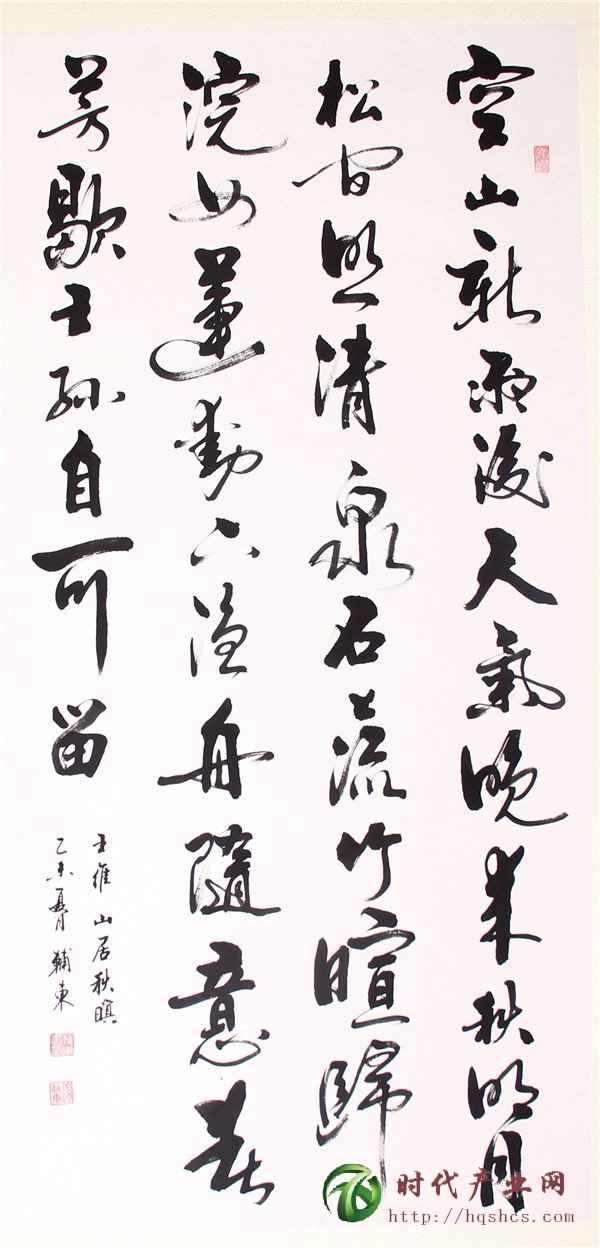 空山新雨後天氣晚来秋明月
松間照清泉石上流竹暄歸
浣女蓮動下漁舟隨意春
芳歇王孫自可留
王維山居秋暝
乙未夏月輔東
时代产业网
http://hqshcs.com